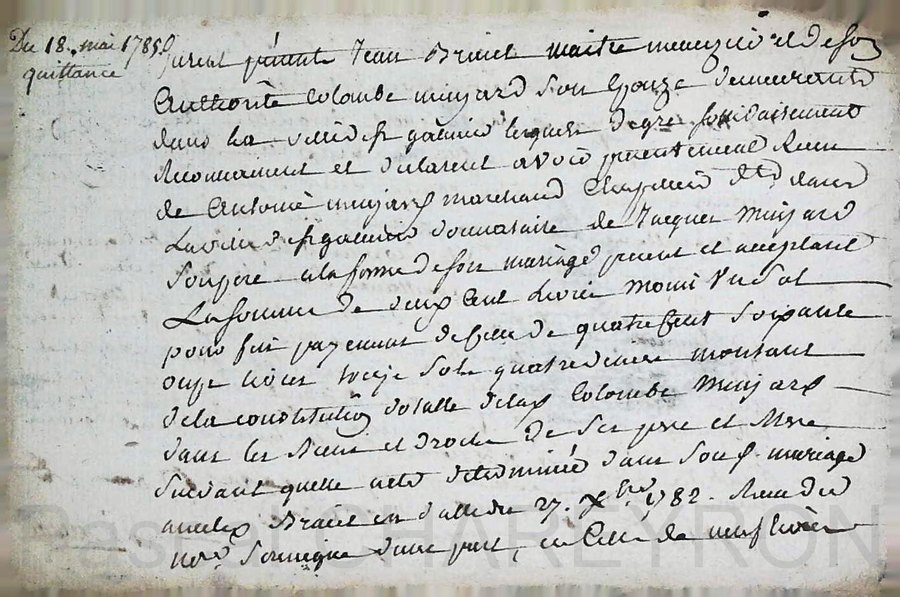 Du 18. mai 1785
quittance
furent présent Jean Brunel maitre menuzié et de son
Authorité Colombe minjard son Epouze demeurants
dans la ville de st galmier lesquels de gré solidairement
Reconnaissent et déclarent avoir présentement Receu
de Antoine minjard marchand Chapelier dt dans
La ville de st galmier donnataire de Jacques Minjard
Son père a la forme de son mariage présent et acceptant
La somme de deux Cent Livres moins Un Sol
pour fin payement de Celle de quatre Cent Soixante
onze livres treize sols quatre deniers montant
de la constitution dotalle de lad Colombe Minjard
dans les Biens et droits de Ses père et Mère
Suivant quelle a été déterminée dans son mariage
avec led Brunel en datte du 27. xbre 1782. Receu du
nore Soussigné d'une part, en Celle de neuf livres
CHAREYRON